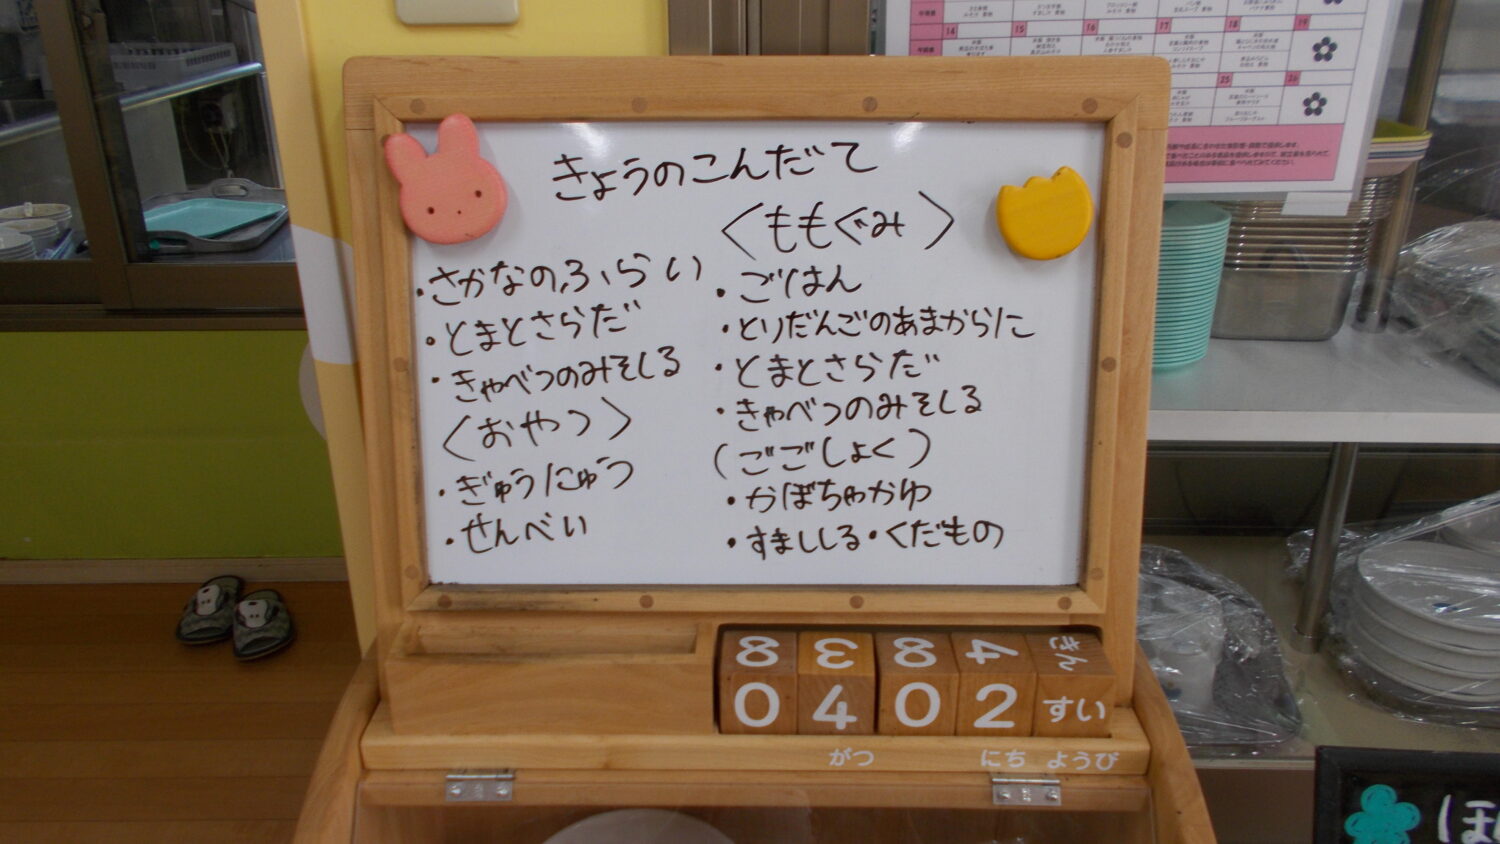 きょうのこんだて
・さかなのふらい
・とまとさらだ
・きゃべつのみそしる
〈おやつ〉
・ぎゅうにゅう
・せんべい
〈ももぐみ〉
・ごはん
・とりだんごのあまからに
・とまとさらだ
・きゃべつのみそしる
(ごごしょく)
・かぼちゃかゆ
・すましじる・くだもの
8 3 8 4 きん
0 4 0 2 すい
がつ にち ようび
14 15 16 17 18 19
25 26